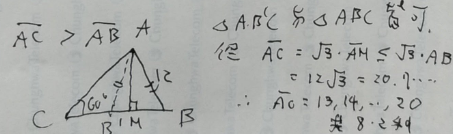 AC > AB
A
12
60°
C
B'
M
B
△AB'C 與 △ABC 皆可.
AC = √3·AM ≤ √3·AB
= 12√3 = 20.7····
∴ AC = 13, 14, ···, 20
共 8